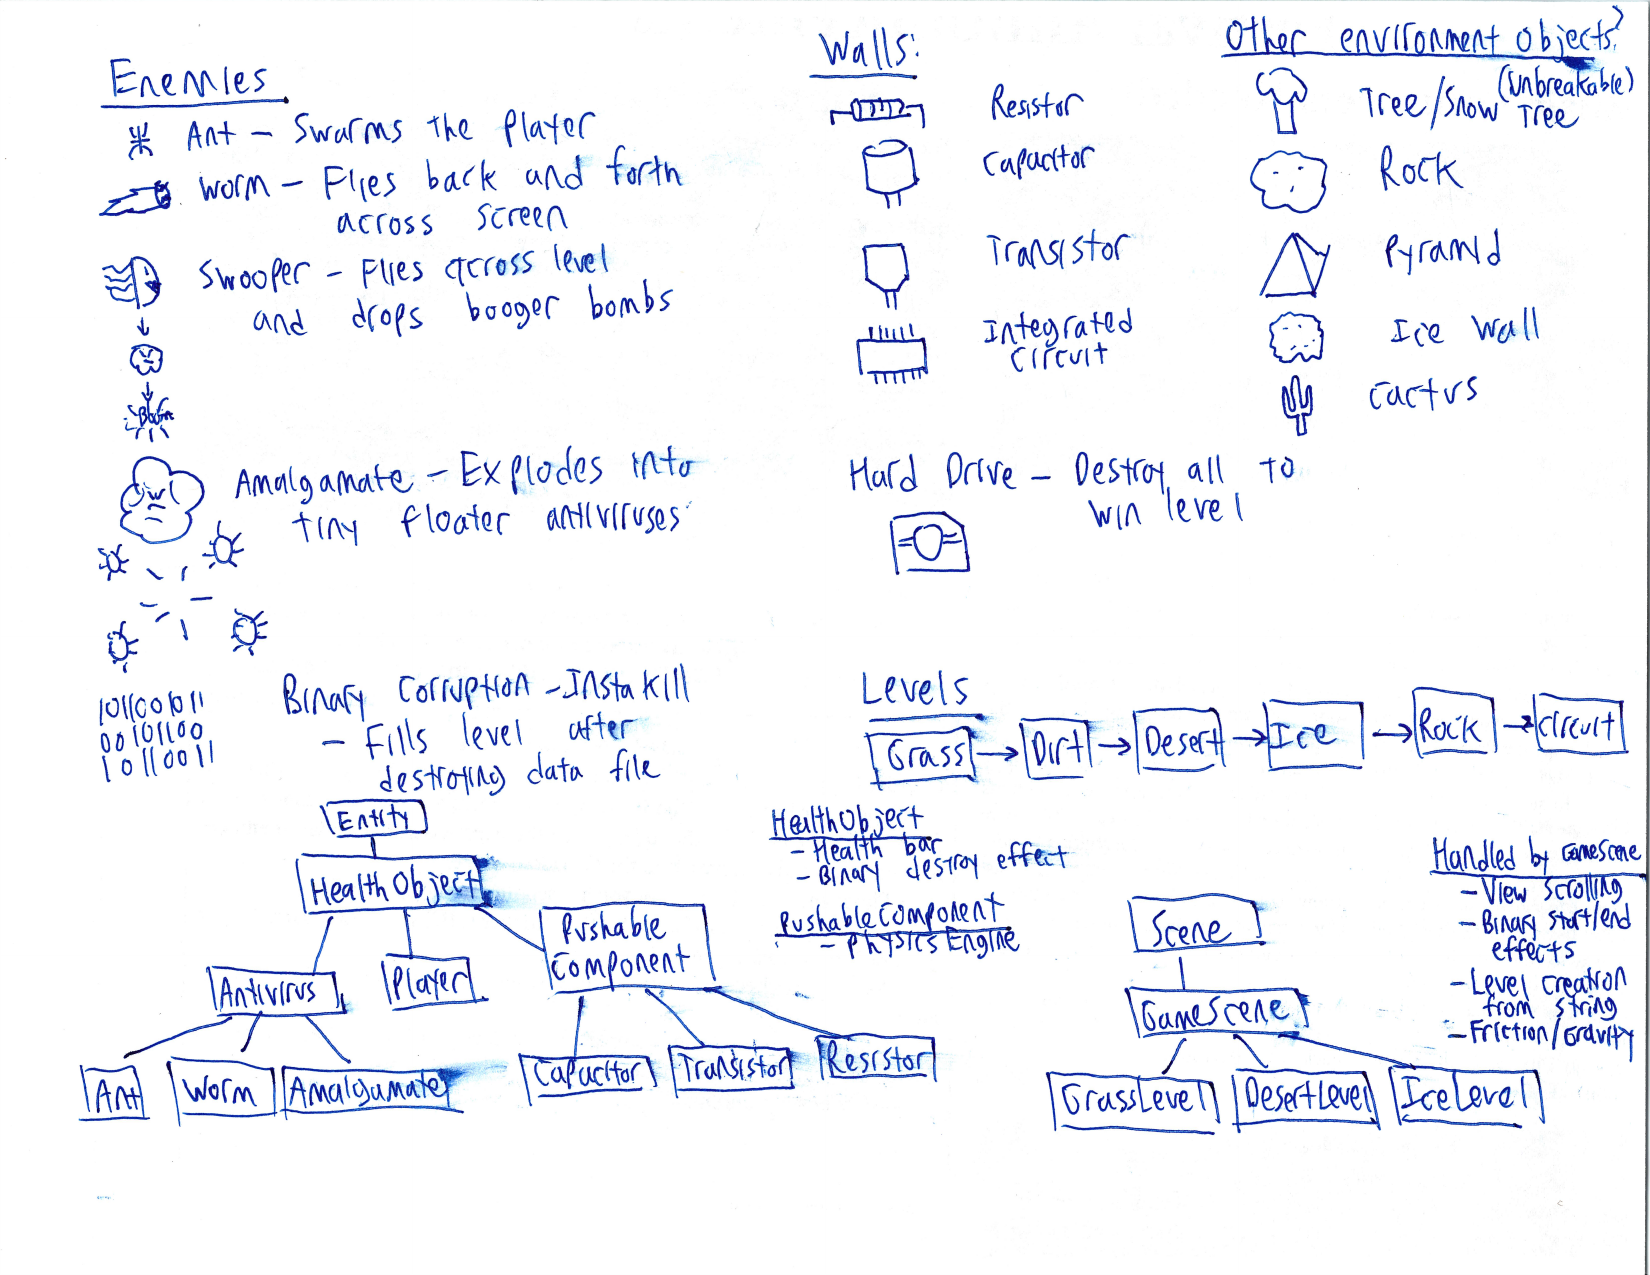 Enemies
Ant - Swarms the player
Worm - Flies back and forth
across screen
Swooper - Flies across level
and drops booger bombs
Amalgamate - Explodes into
tiny floater antiviruses
1011001011
00101100
10110011
Binary Corruption - Instakill
- Fills level after
destroying data file
Walls:
Resistor
Capacitor
Transistor
Integrated
Circuit
Other environment objects?
(Unbreakable)
Tree/Snow Tree
Rock
Pyramid
Ice Wall
Cactus
Hard Drive - Destroy all to
win level
Levels
Grass
Dirt
Desert
Ice
Rock
Circuit
Entity
HealthObject
Antivirus
Player
Pushable
Component
Ant
Worm
Amalgamate
Capacitor
Transistor
Resistor
HealthObject
- Health bar
- Binary destroy effect
PushableComponent
- Physics Engine
Scene
GameScene
GrassLevel
DesertLevel
IceLevel
Handled by GameScene
- View Scrolling
- Binary start/end
effects
- Level creation
from string
- Friction/Gravity